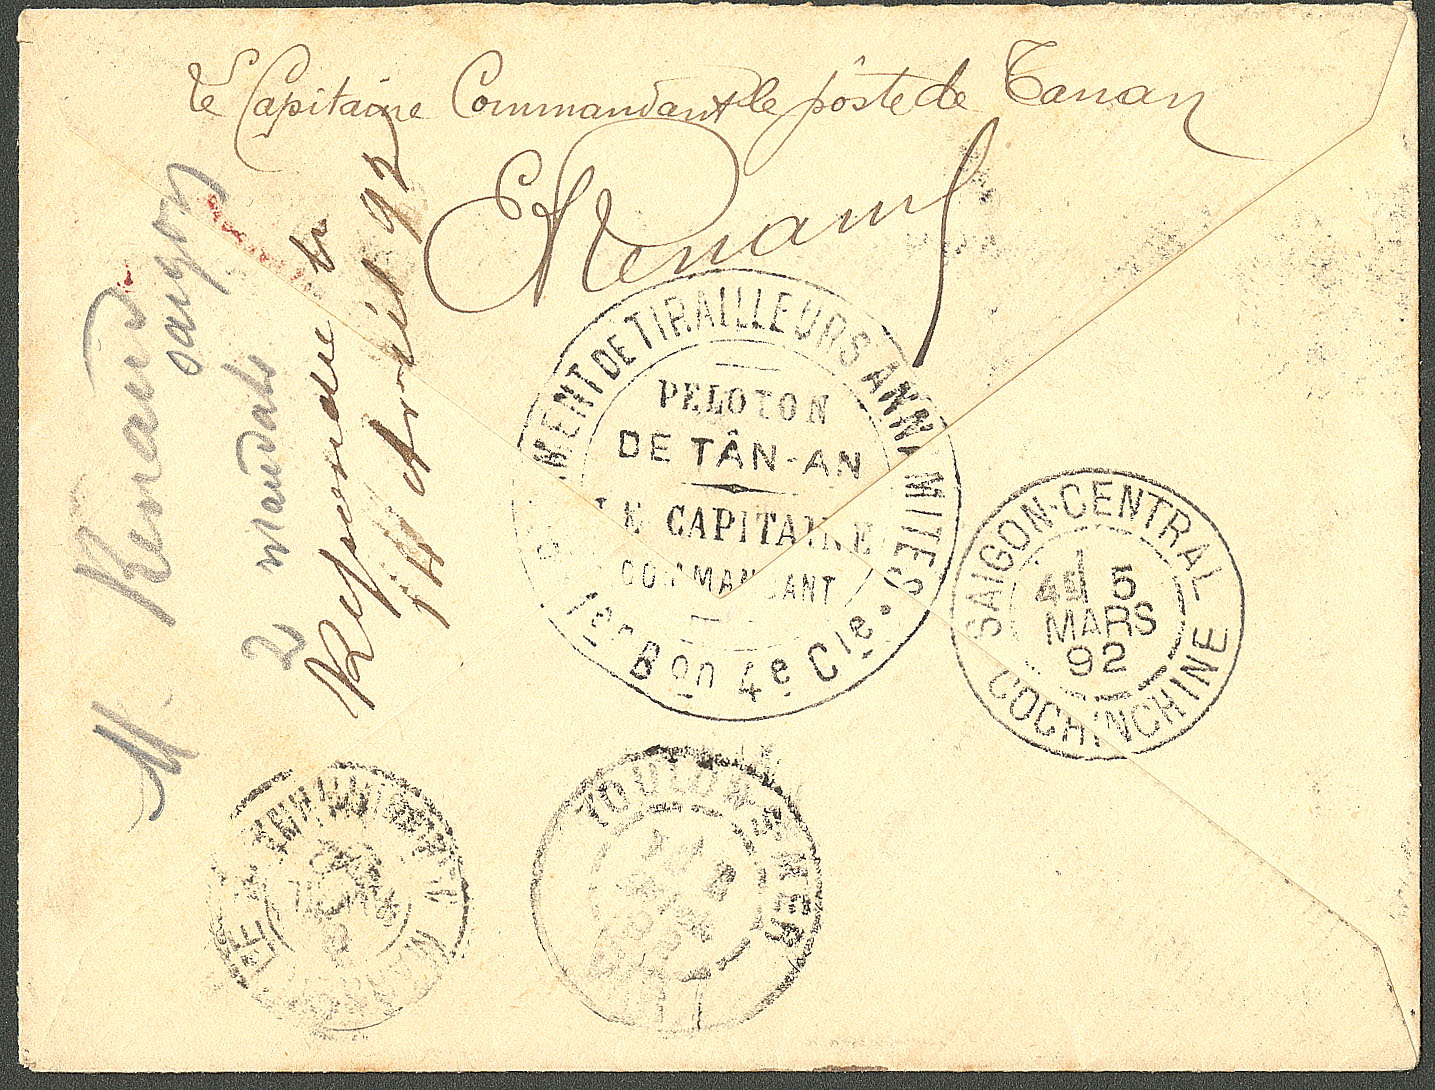 Le Capitaine Commandant le pôste de Tanan
Renaud
M. Renaud
Saigon
2 mandats
Répondre le
14 Avril 92
MENT DE TIRAILLEURS ANNAMITES
PELOTON
DE TÂN-AN
LE CAPITAINE
COMMANDANT
1er Bon 4e Cie
SAIGON-CENTRAL
5
MARS
92
COCHINCHINE
TOULON-S-MER